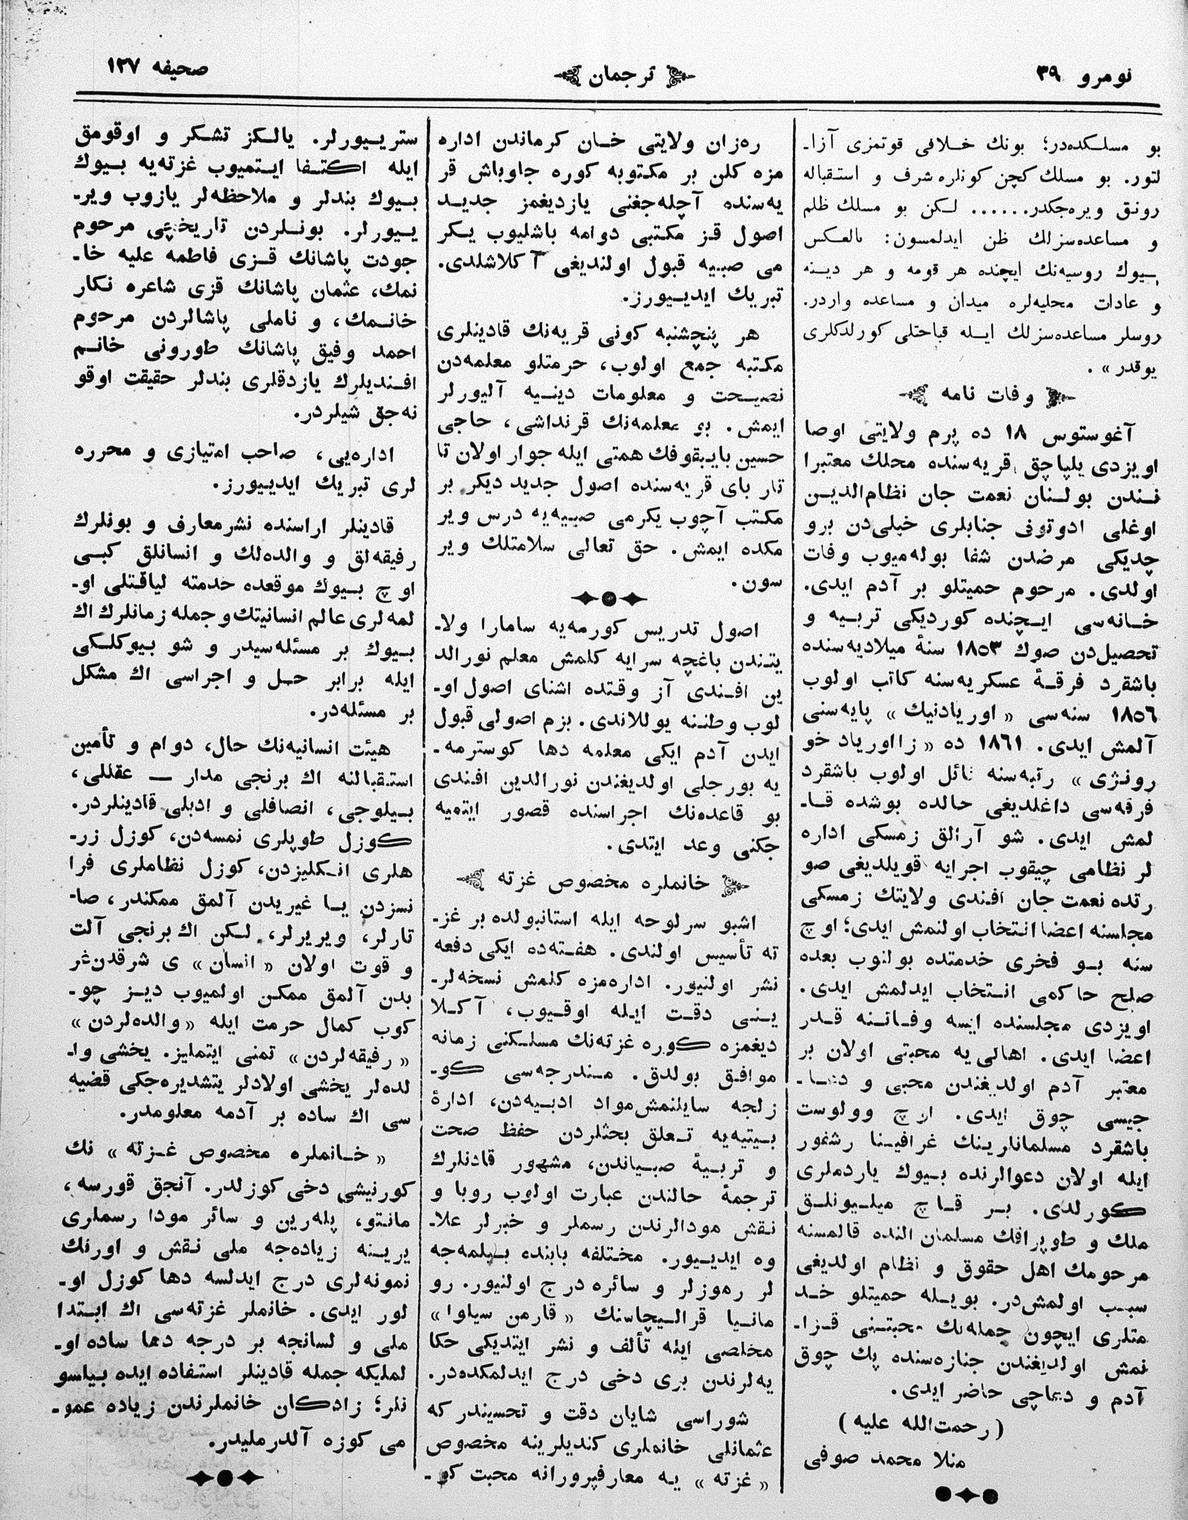 نومرو ٣٩
ترجمان
صحیفه ١٢٧
بو مسلکده‌در؛ بونك خلافی قوتمزی آزا-
لتور. بو مسلك کچن کونلره شرف و استقباله
رونق ویره‌جکدر...... لکن بو مسلك ظلم
و مساعده‌سزلك ظن ایدلمسون: بالعکس
بیوك روسیه‌نك ایچنده هر قومه و هر دینه
و عادات محلیه‌لره میدان و مساعده واردر.
روسلر مساعده‌سزلك ایله قباحتلی کورلدکلری
یوقدر» .
وفات نامه
آغوستوس ١٨ ده پرم ولایتی اوصا
اویزدی یلپاچق قریه‌سنده محلك معتبرا
نندن بولنان نعمت جان نظام‌الدین
اوغلی ادوتوفی جنابلری خیلی‌دن برو
چدیکی مرضدن شفا بوله‌میوب وفات
اولدی. مرحوم حمیتلو بر آدم ایدی.
خانه‌سی ایچنده کوردیکی تربیه و
تحصیل‌دن صوك ١٨٥٣ سنهٔ میلادیه‌سنده
باشقرد فرقهٔ عسکریه‌سنه کاتب اولوب
١٨٥٦ سنه‌سی «اوریادنیك» پایه‌سنی
آلمش ایدی. ١٨٦١ ده «زااوریاد خو
رونژی» رتبه‌سنه نائل اولوب باشقرد
فرقه‌سی داغلدیغی حالده بوشده قا-
لمش ایدی. شو آرالق زمسکی اداره
لر نظامی چیقوب اجرایه قویلدیغی صو
رتده نعمت جان افندی ولایتك زمسکی
مجلسنه اعضا انتخاب اولنمش ایدی؛ اوچ
سنه بو فخری خدمتده بولنوب بعده
صلح حاکمی انتخاب ایدلمش ایدی.
اویزدی مجلسنده ایسه وفاتنه قدر
اعضا ایدی. اهالی‌یه محبتی اولان بر
معتبر آدم اولدیغندن محبی و دعا-
جیسی چوق ایدی. اوچ وولوست
باشقرد مسلمانلرینك غرافینا رشفور
ایله اولان دعوالرنده بیوك یاردملری
کورلدی. بر قاچ میلیونلق
ملك و طوپراقك مسلمان النده قالمسنه
مرحومك اهل حقوق و نظام اولدیغی
سبب اولمش‌در. بویله حمیتلو خد
متلری ایچون جمله‌نك محبتنی قزا-
نمش اولدیغندن جنازه‌سنده پك چوق
آدم و دعاچی حاضر ایدی.
(رحمت‌الله علیه)
منلا محمد صوفی
ره‌زان ولایتی خان کرماندن اداره
مزه کلن بر مکتوبه کوره جاوباش قر
یه‌سنده آچله‌جغنی یازدیغمز جدید
اصول قز مکتبی دوامه باشلیوب یکر
می صبیه قبول اولندیغی آکلاشلدی.
تبریك ایدییورز.
هر پنچشنبه کونی قریه‌نك قادینلری
مکتبه جمع اولوب، حرمتلو معلمه‌دن
نصیحت و معلومات دینیه آلیورلر
ایمش. بو معلمه‌نك قرنداشی، حاجی
حسین بایبقوفك همتی ایله جوار اولان تا
تار بای قریه‌سنده اصول جدید دیکر بر
مکتب آچوب یکرمی صبیه‌یه درس ویر
مکده ایمش. حق تعالی سلامتلك ویر
سون.
اصول تدریس کورمه‌یه سامارا ولا-
یتندن باغچه سرایه کلمش معلم نورالد
ین افندی آز وقتده اشنای اصول او-
لوب وطننه یوللاندی. بزم اصولی قبول
ایدن آدم ایکی معلمه دها کوسترمه-
یه بورجلی اولدیغندن نورالدین افندی
بو قاعده‌نك اجراسنده قصور ایتمیه
جکنی وعد ایتدی.
خانملره مخصوص غزته
اشبو سرلوحه ایله استانبولده بر غز-
ته تأسیس اولندی. هفته‌ده ایکی دفعه
نشر اولنیور. اداره‌مزه کلمش نسخه‌لر-
ینی دقت ایله اوقیوب، آکلا
دیغمزه کوره غزته‌نك مسلکنی زمانه
موافق بولدق. مندرجه‌سی کو-
زلجه سایلنمش مواد ادبیه‌دن، ادارهٔ
بیتیه‌یه تعلق بحثلردن حفظ صحت
و تربیهٔ صبیاندن، مشهور قادنلرك
ترجمهٔ حالندن عبارت اولوب روبا و
نقش مودالرندن رسملر و خبرلر علا-
وه ایدییور. مختلفه بابنده بیلمه‌جه
لر رموزلر و سائره درج اولنیور. رو
مانیا قرالیچاسنك «قارمن سیلوا»
مخلصی ایله تألف و نشر ایتدیکی حکا
یه‌لرندن بری دخی درج ایدلمکده‌در.
شوراسی شایان دقت و تحسیندر که
عثمانلی خانملری کندیلرینه مخصوص
«غزته» یه معارفپرورانه محبت کو-
ستریبورلر. یالکز تشکر و اوقومق
ایله اکتفا ایتمیوب غزته‌یه بیوك
بیوك بندلر و ملاحظه‌لر یازوب ویر-
ییورلر. بونلردن تاریخچی مرحوم
جودت پاشانك قزی فاطمه علیه خا-
نمك، عثمان پاشانك قزی شاعره نکار
خانمك، و ناملی پاشالردن مرحوم
احمد وفیق پاشانك طورونی خانم
افندیلرك یازدقلری بندلر حقیقت اوقو
نه‌جق شیلردر.
اداره‌یی، صاحب امتیازی و محرره
لری تبریك ایدییورز.
قادینلر اراسنده نشر معارف و بونلرك
رفیقه‌لق و والده‌لك و انسانلق کبی
اوچ بیوك موقعده خدمته لیاقتلی او-
لمه‌لری عالم انسانیتك و جمله زمانلرك اك
بیوك بر مسئله‌سیدر و شو بیوکلکی
ایله برابر حل و اجراسی اك مشکل
بر مسئله‌در.
هیئت انسانیه‌نك حال، دوام و تأمین
استقبالنه اك برنجی مدار — عقللی،
بیلوجی، انصافلی و ادبلی قادینلردر.
کوزل طوپلری نمسه‌دن، کوزل زر-
هلری انکلیزدن، کوزل نظاملری فرا
نسزدن یا غیریدن آلمق ممکندر، صا-
تارلر، ویریرلر، لکن اك برنجی آلت
و قوت اولان «انسان» ی شرقدن غر
بدن آلمق ممکن اولمیوب دیز چو-
کوب کمال حرمت ایله «والده‌لردن»
«رفیقه‌لردن» تمنی ایتملیز. یخشی وا-
لده‌لر یخشی اولادلر یتشدیره‌جکی قضیه
سی اك ساده بر آدمه معلومدر.
«خانملره مخصوص غزته» نك
کورنیشی دخی کوزلدر. آنجق قورسه،
مانتو، پله‌رین و سائر مودا رسملری
یرینه زیاده‌جه ملی نقش و اورنك
نمونه‌لری درج ایدلسه دها کوزل او-
لور ایدی. خانملر غزته‌سی اك ابتدا
ملی و لسانجه بر درجه دها ساده او-
لملیکه جمله قادینلر استفاده ایده بیلسو
نلر؛ زادکان خانملرندن زیاده عمو-
می کوزه آلدرملیدر.